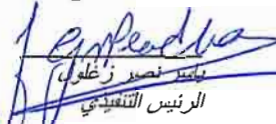 ياسر نصير زغلول
الرئيس التنفيذي